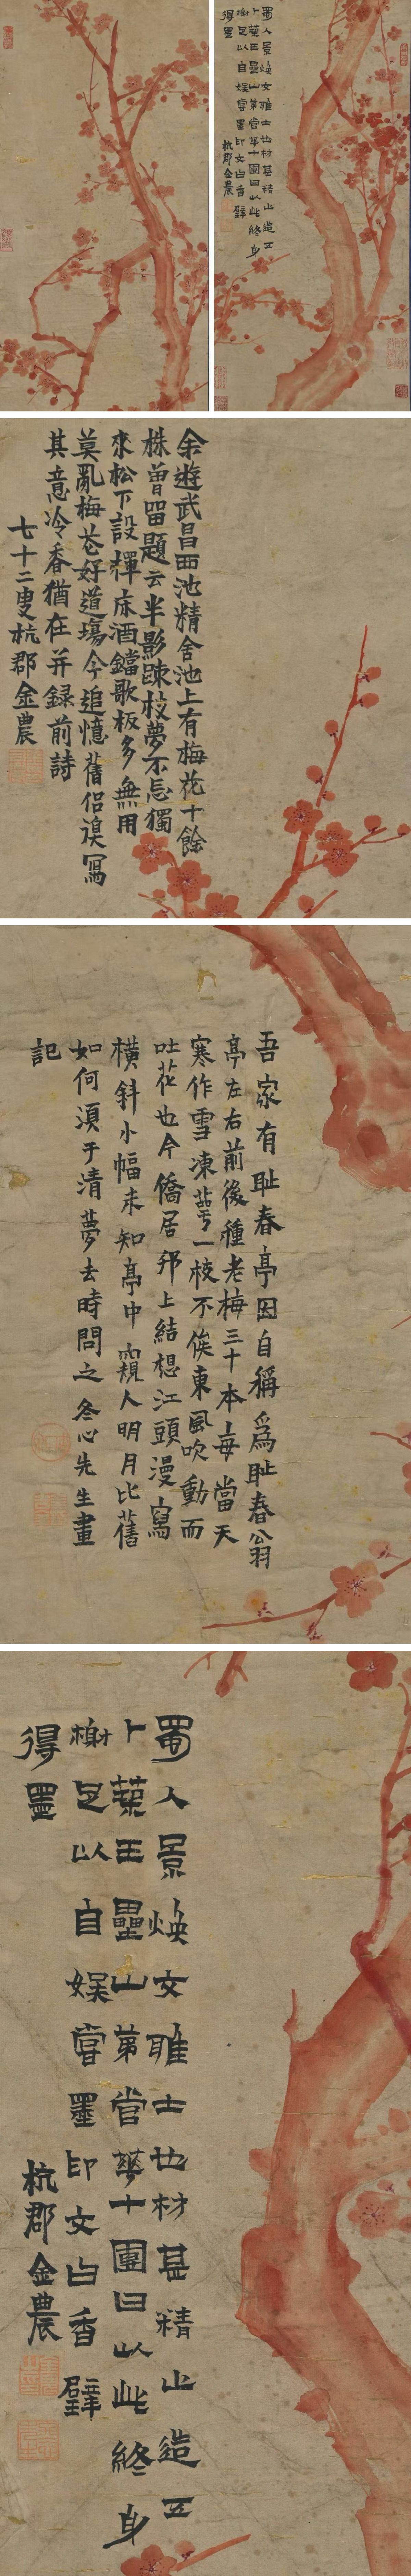 蜀人景煥文雅士也
卜築王壘山茅堂華
榭足以自娛嘗
得墨
材甚精止造五
十團曰以此終身
墨印文曰香璧
杭郡金農
余遊武昌西池精舍池上有梅花十餘
株曾留題云半影踈枝夢不忘獨
來松下設禪床酒鐺歌板多無用
莫亂梅花好道場今追憶舊侶漫寫
其意冷香猶在并録前詩
七十二叟杭郡金農
吾家有耻春亭因自稱為耻春翁
亭左右前後種老梅三十本每當天
寒作雪凍萼一枝不俟東風吹動而
吐花也今僑居邗上結想江頭漫寫
橫斜小幅未知亭中窺人明月比舊
如何須于清夢去時問之冬心先生畫
記
蜀人景煥文雅士也
卜築王壘山茅堂華
榭足以自娛嘗
得墨
材甚精止造五
十團曰以此終身
墨印文曰香璧
杭郡金農